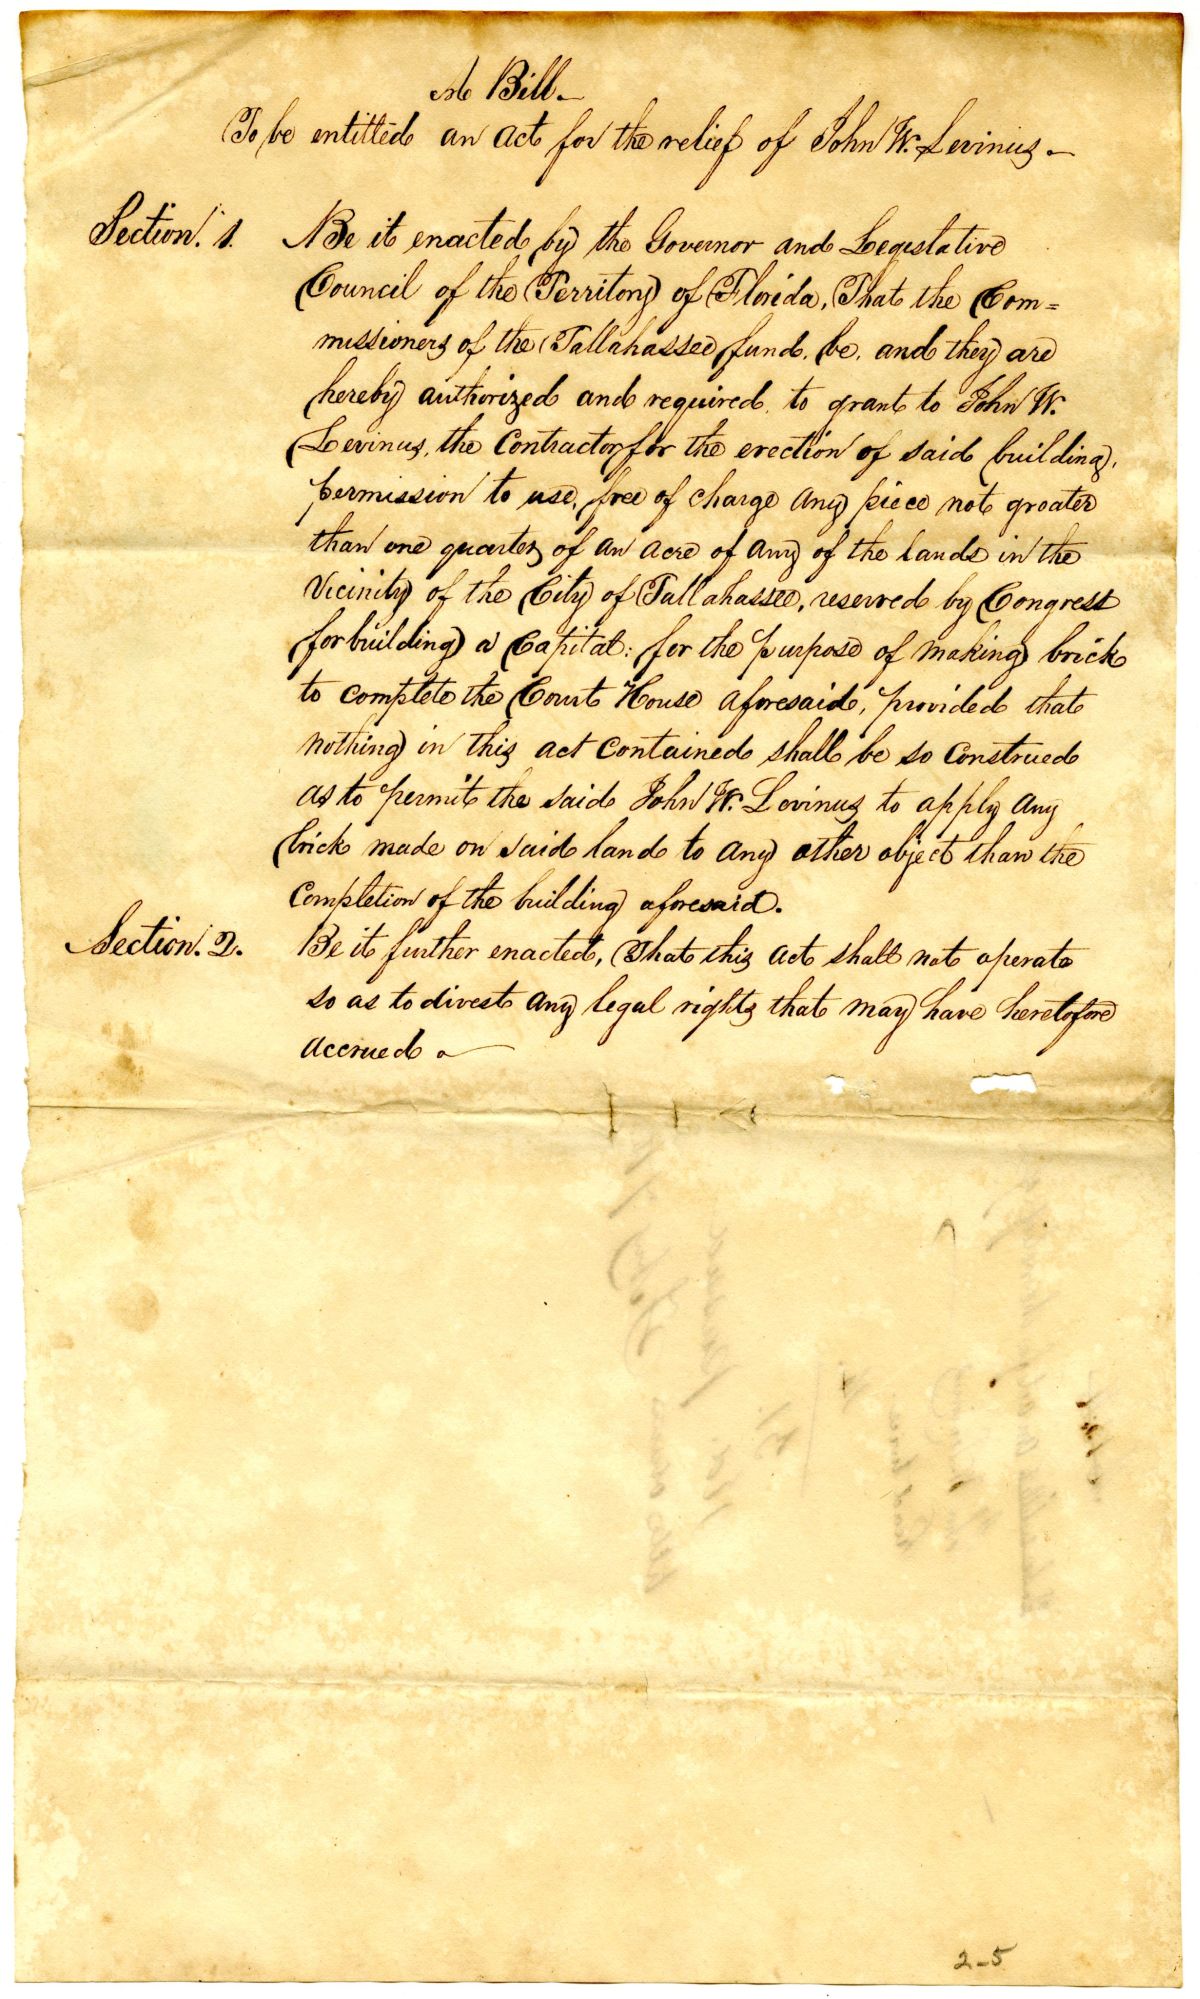 A Bill.
To be entitled an act for the relief of John W. Levinus.
Section. 1. Be it enacted by the Governor and Legislative
Council of the Territory of Florida, That the Com=
missioners of the Tallahassee fund, be, and they are
hereby authorized and required, to grant to John W.
Levinus, the Contractor for the erection of said building,
permission to use, free of charge any piece not greater
than one quarter of an acre of any of the lands in the
Vicinity of the City of Tallahassee, reserved by Congress
for building a Capital: for the purpose of making brick
to complete the Court House aforesaid, provided that
nothing in this act contained shall be so construed
as to permit the said John W. Levinus to apply any
brick made on said land to any other object than the
completion of the building aforesaid.
Section. 2. Be it further enacted, That this act shall not operate
so as to divest any legal rights that may have heretofore
accrued
2-5